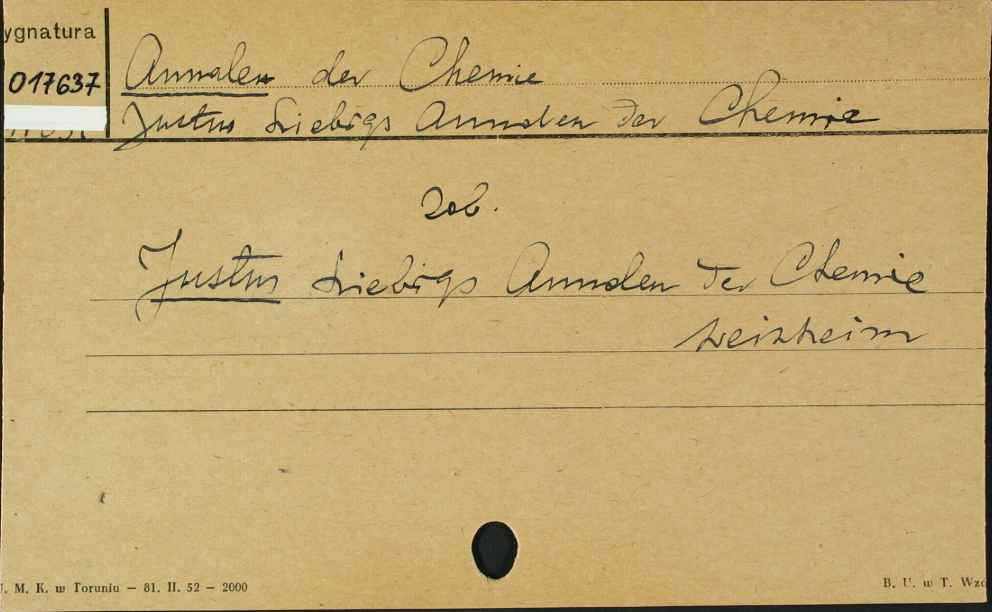 ygnatura
017637
Annalen der Chemie
Justus Liebigs Annalen der Chemie
zob.
Justus Liebigs Annalen der Chemie
Weinheim
. M. K. w Toruniu — 81. II. 52 — 2000
B. U. w T. Wzó